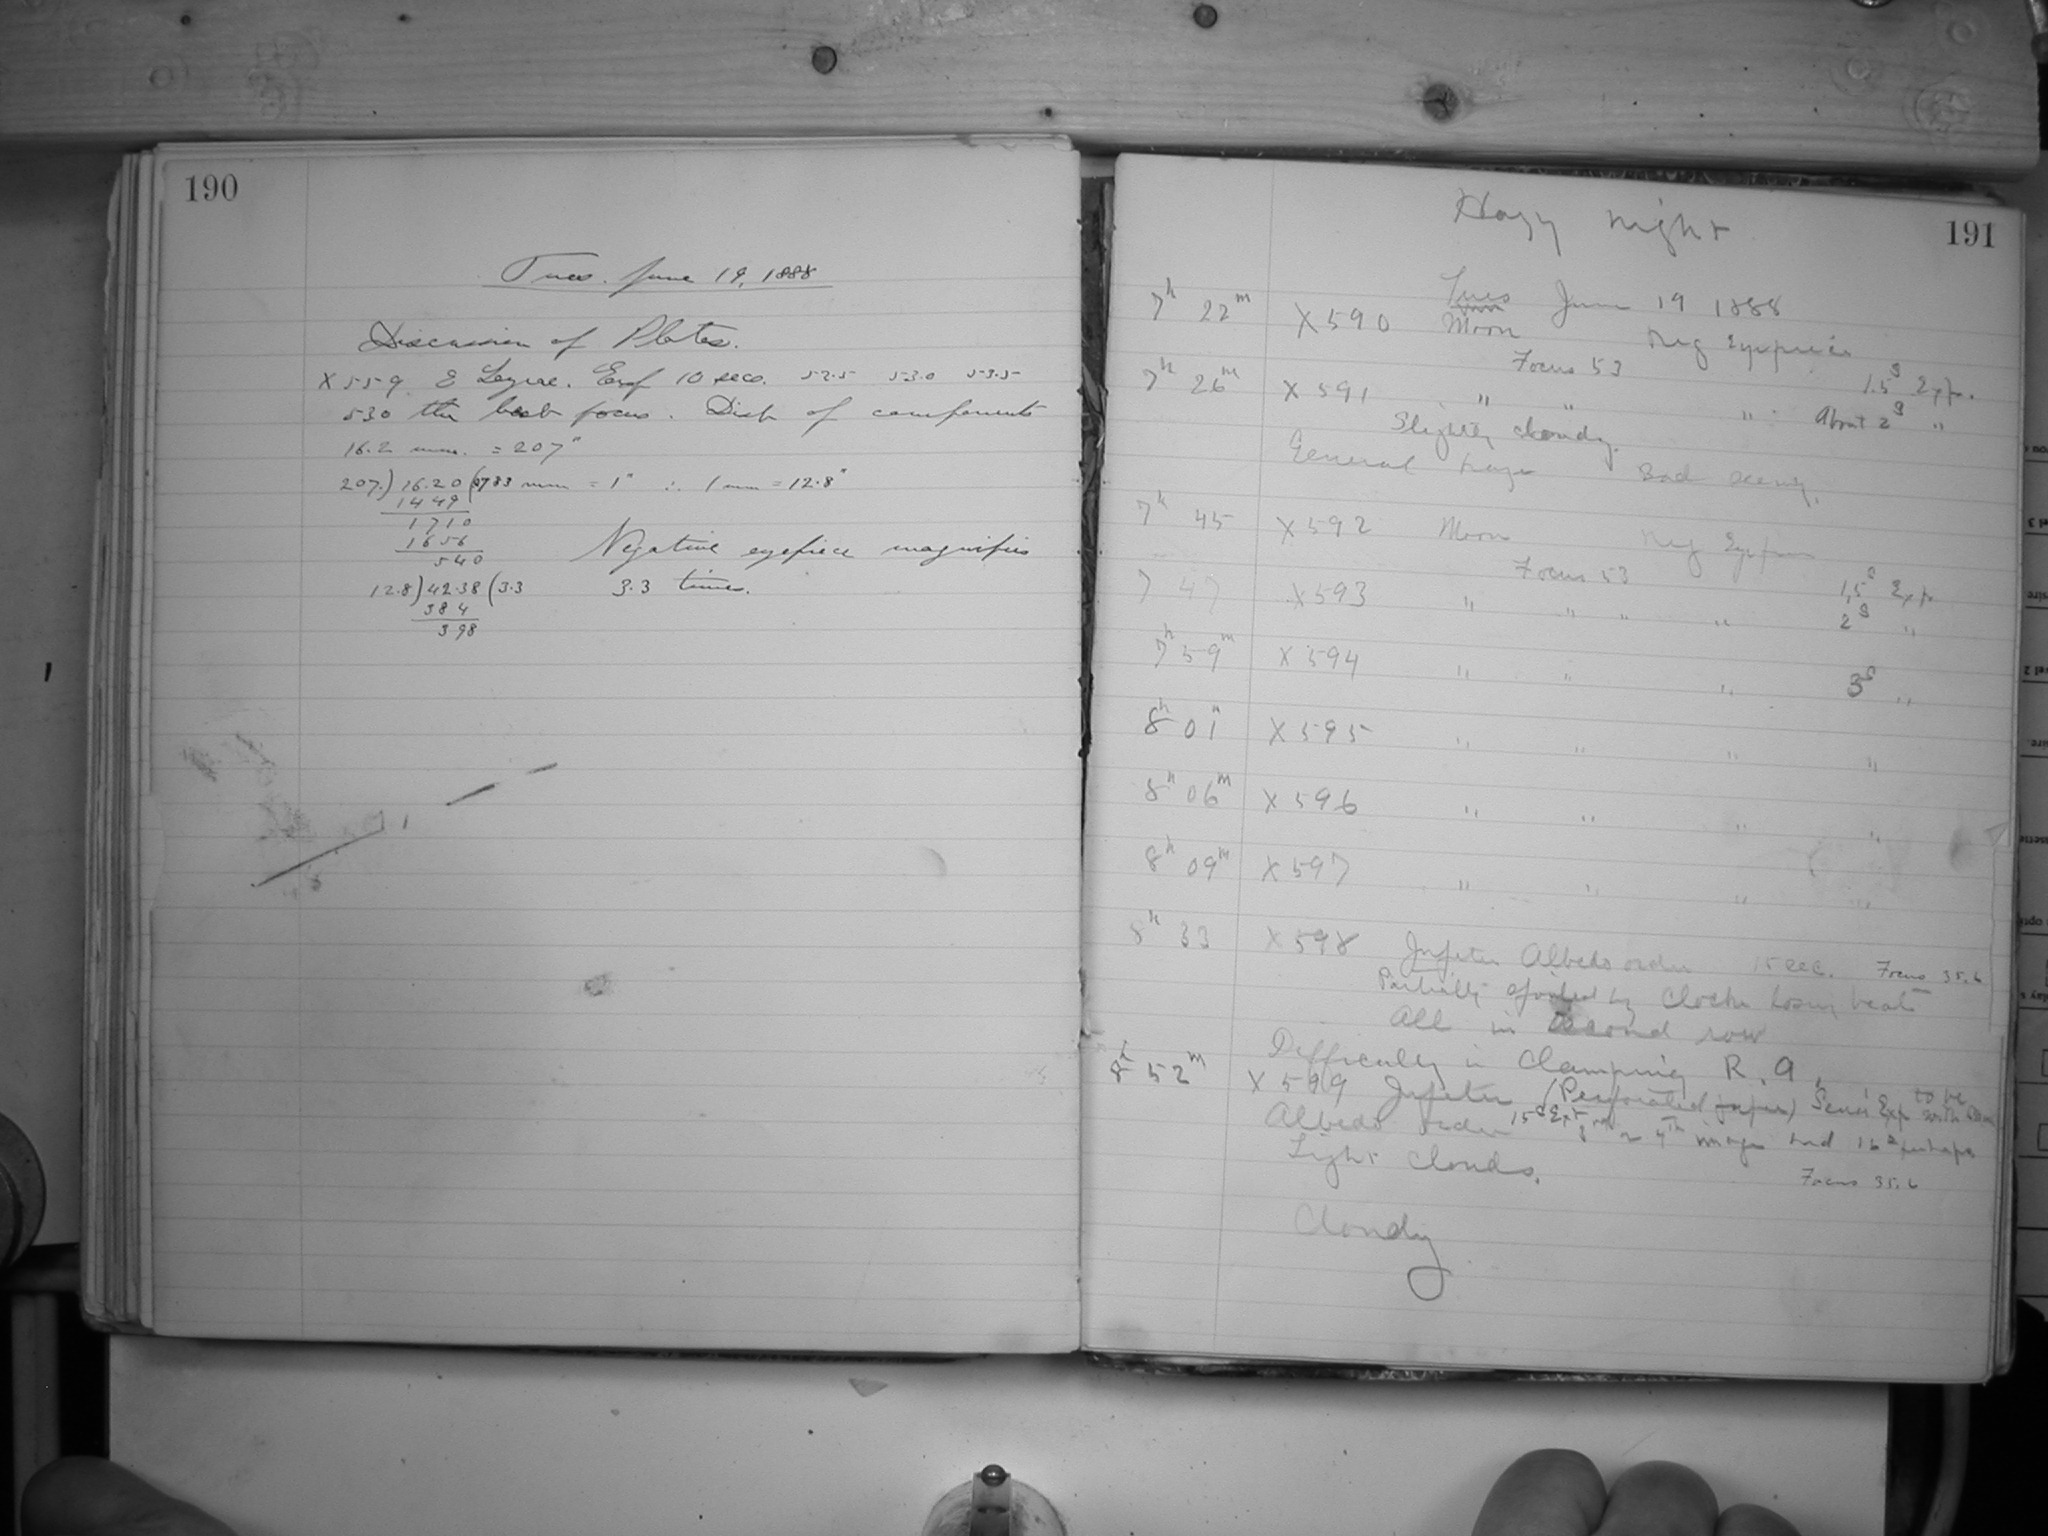 190
Tues. June 19, 1888
Discussion of Plates.
X559 ε Lyrae. Exp 10 secs. 52.5 53.0 53.5
530 the best focus. Dist of components
16.2 mm. = 207"
207.) 16.20 (0783 mm = 1" ∴ 1 mm = 12.8"
1449
1710
1656
540
Negative eyepiece magnifies
12.8) 42.38 (3.3 3.3 times.
384
398
191
Hazy night
Tues June 19 1888
7h 22m X590 Moon Neg Eyepiece
Focus 53 1.5s Exp.
7h 26m X591 " " " About 2s "
Slightly cloudy.
General haze Bad seeing.
7h 45 X592 Moon Neg Eyepiece
Focus 53 1.5s Exp
7 47 X593 " " " " 2s "
7h 59m X594 " " " 3s "
8h 01m X595 " " " "
8h 06m X596 " " " "
8h 09m X597 " " " "
8h 33 X598 Jupiter Albedo order 15 sec. Focus 35.6
Partially spoiled by Clock losing beats
All in second row
Difficulty in Clamping R. A.
8h 52m X599 Jupiter (Perforated paper) Exp to be with
Albedo order 15s Exp 3rd or 4th image had 16s perhaps
Light clouds.
Focus 35.6
Cloudy